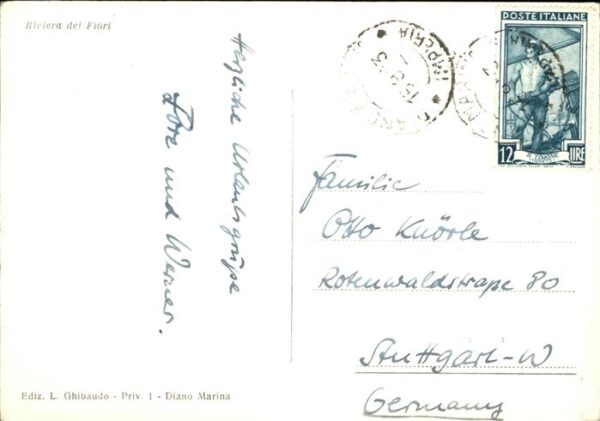 Riviera dei Fiori
Herzliche Urlaubsgrüße
Lore und Werner.
Ediz. L. Ghibaudo - Priv. 1 - Diano Marina
POSTE ITALIANE
12 LIRE
IL TIMONE
IMPERIA
Familie
Otto Knörle
Rotenwaldstraße 80
Stuttgart-W
Germany